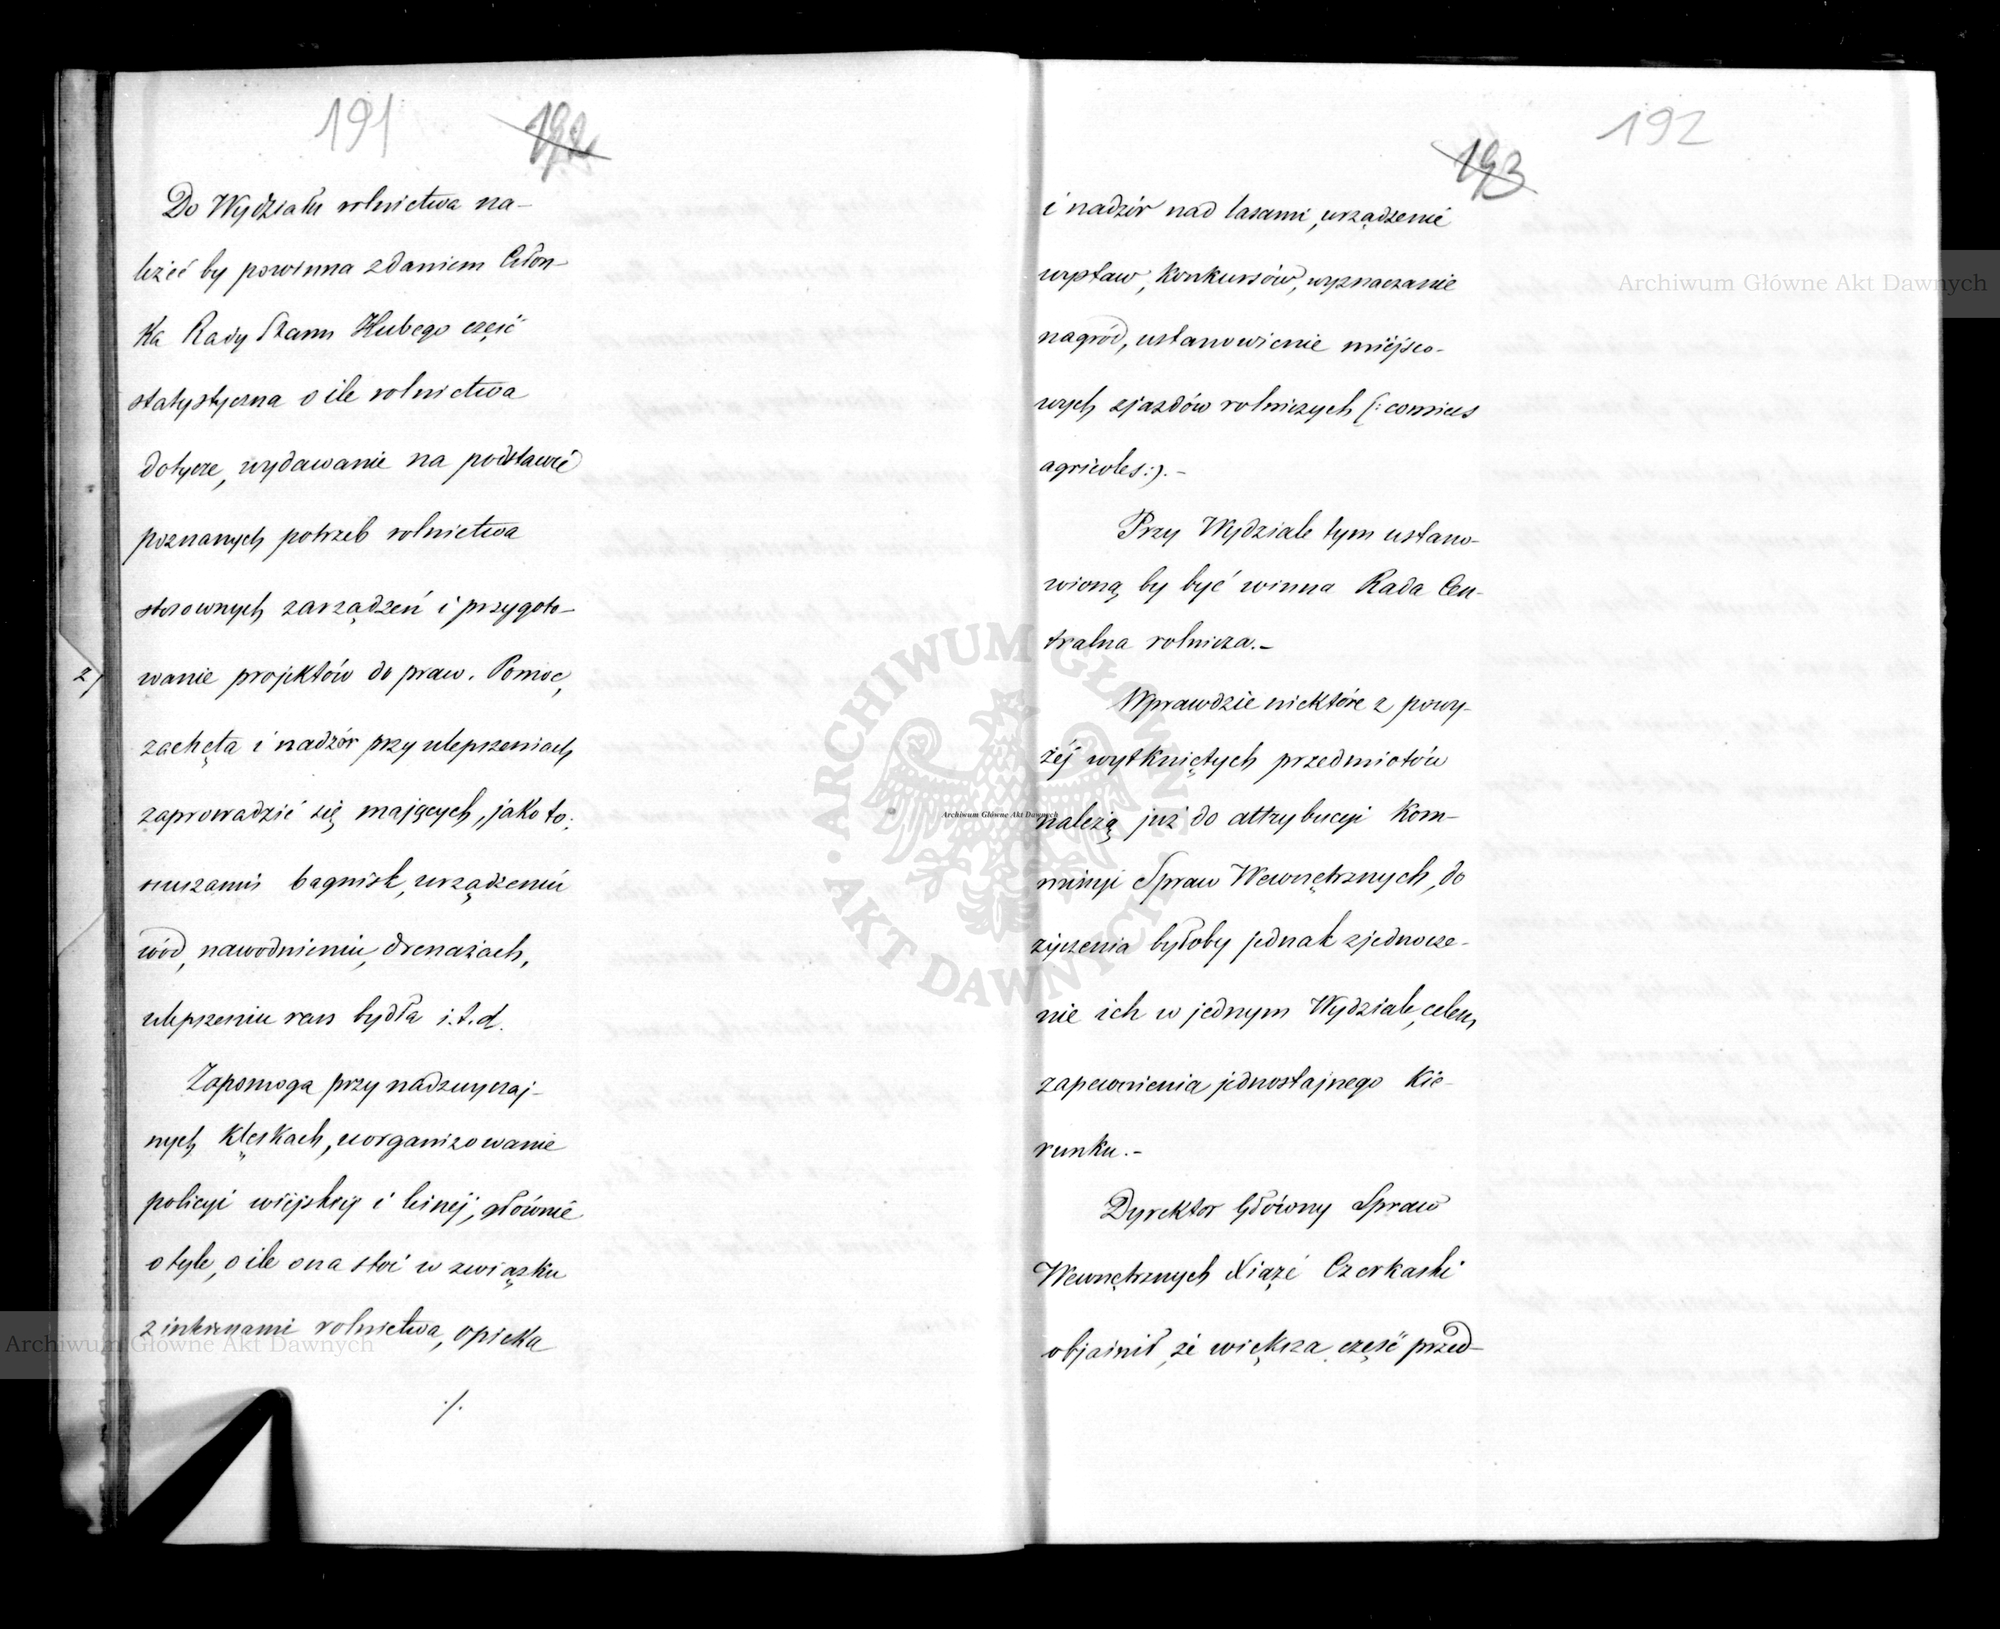 191 192
Do Wydziału rolnictwa na-
leżéć by powinna zdaniem Człon-
ka Rady Stanu Hubego część
statystyczna o ile rolnictwa
dotycze, wydawanie na podstawie
poznanych potrzeb rolnictwa
stosownych zarządzeń i przygoto-
2) wanie projektów do praw. Pomoc,
zachęta i nadzór przy ulepszeniach
zaprowadzić się mających, jako to:
osuszaniu bagnisk, urządzeniu
wód, nawodnieniu, drenażach,
ulepszeniu ras bydła i.t.d.
Zapomoga przy nadzwyczaj-
nych klęskach, uorganizowanie
policyi wiejskiéj i leśnéj, głównie
o tyle, o ile ona stoi w związku
z interesami rolnictwa, opieka
./.
193 192
i nadzór nad lasami, urządzenie
wystaw, konkursów, wyznaczanie
nagród, ustanowienie miéjsco-
wych zjazdów rolniczych (: comices
agricoles:).-
Przy Wydziale tym ustano-
wioną by być winna Rada Cen-
tralna rolnicza.-
Wprawdzie niektóre z powy-
żéj wytkniętych przedmiotów
należą już do attrybucyi Kom-
missyi Spraw Wewnętrznych, do
życzenia byłoby jednak zjednocze-
nie ich w jednym Wydziale, celem
zapewnienia jednostajnego kie-
runku.-
Dyrektor Główny Spraw
Wewnętrznych Xiążę Czerkaski
objaśnił, że większa część przed-
Archiwum Główne Akt Dawnych
Archiwum Główne Akt Dawnych
Archiwum Główne Akt Dawnych
ARCHIWUM GŁÓWNE AKT DAWNYCH